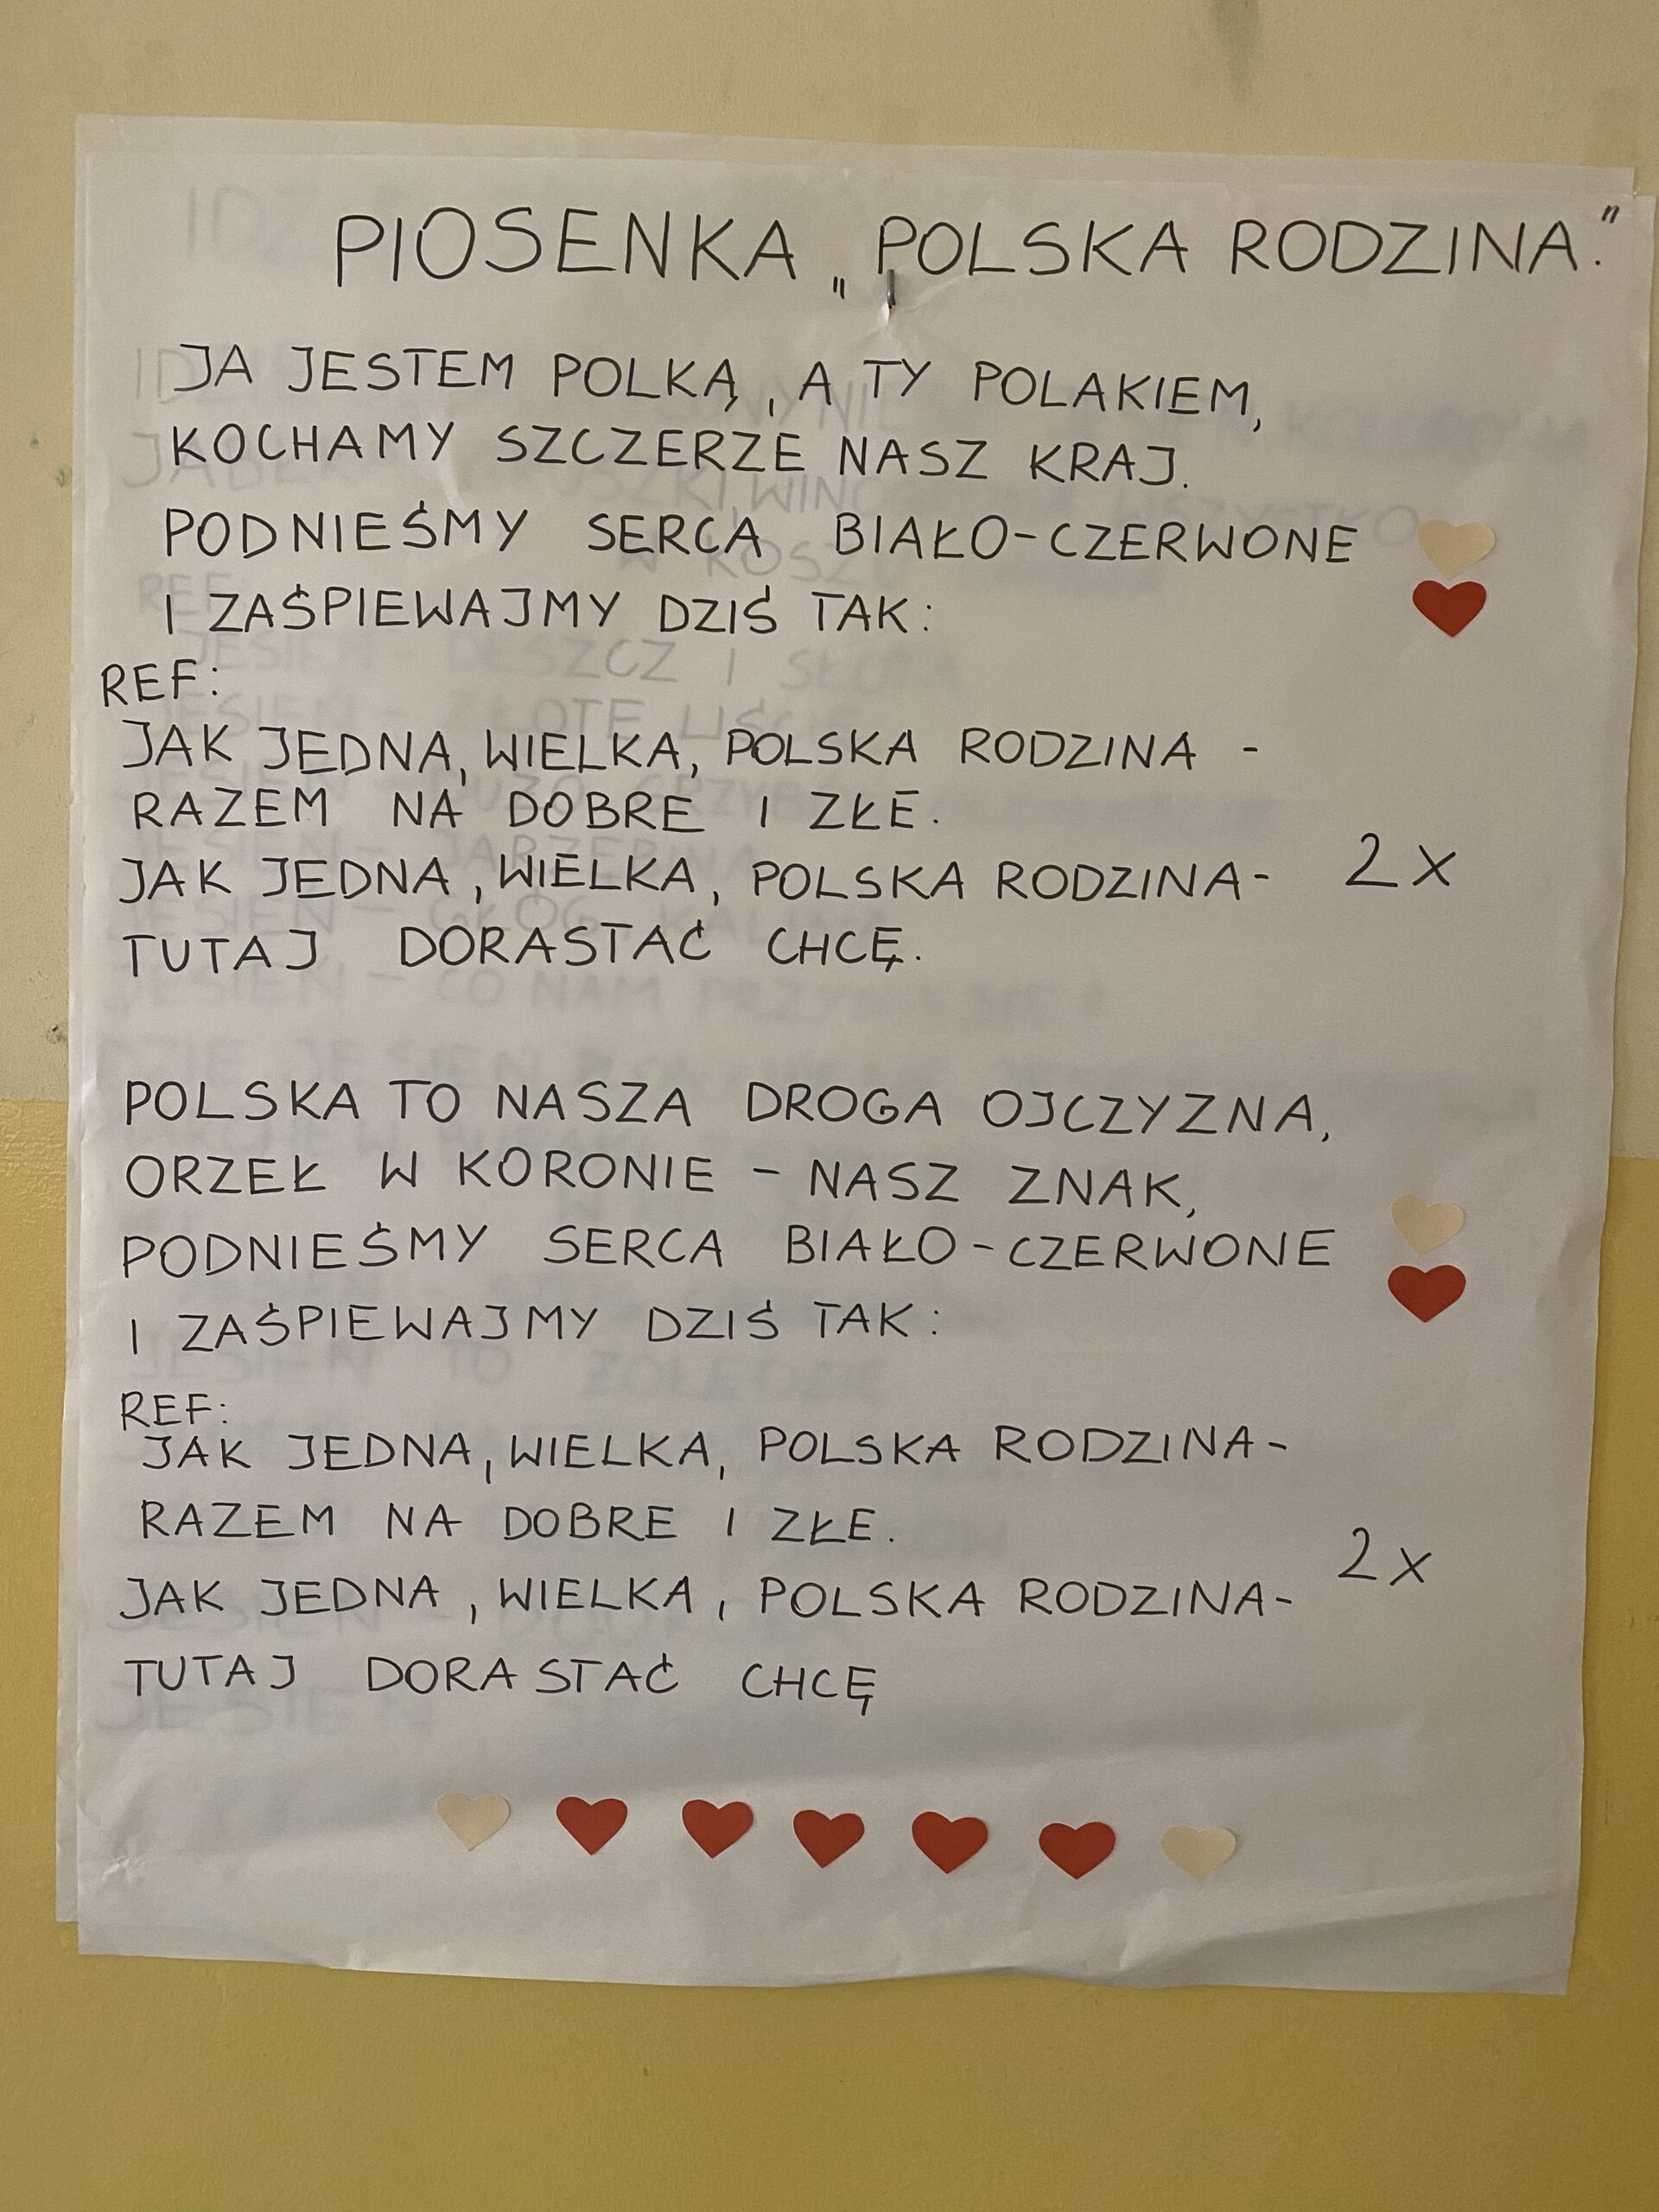 PIOSENKA „POLSKA RODZINA."
JA JESTEM POLKĄ, A TY POLAKIEM,
KOCHAMY SZCZERZE NASZ KRAJ.
PODNIEŚMY SERCA BIAŁO-CZERWONE
I ZAŚPIEWAJMY DZIŚ TAK:
REF:
JAK JEDNA, WIELKA, POLSKA RODZINA -
RAZEM NA DOBRE I ZŁE.
2x
JAK JEDNA, WIELKA, POLSKA RODZINA-
TUTAJ DORASTAĆ CHCĘ.
POLSKA TO NASZA DROGA OJCZYZNA,
ORZEŁ W KORONIE - NASZ ZNAK,
PODNIEŚMY SERCA BIAŁO-CZERWONE
I ZAŚPIEWAJMY DZIŚ TAK:
REF:
JAK JEDNA, WIELKA, POLSKA RODZINA-
RAZEM NA DOBRE I ZŁE.
2x
JAK JEDNA, WIELKA, POLSKA RODZINA-
TUTAJ DORASTAĆ CHCĘ